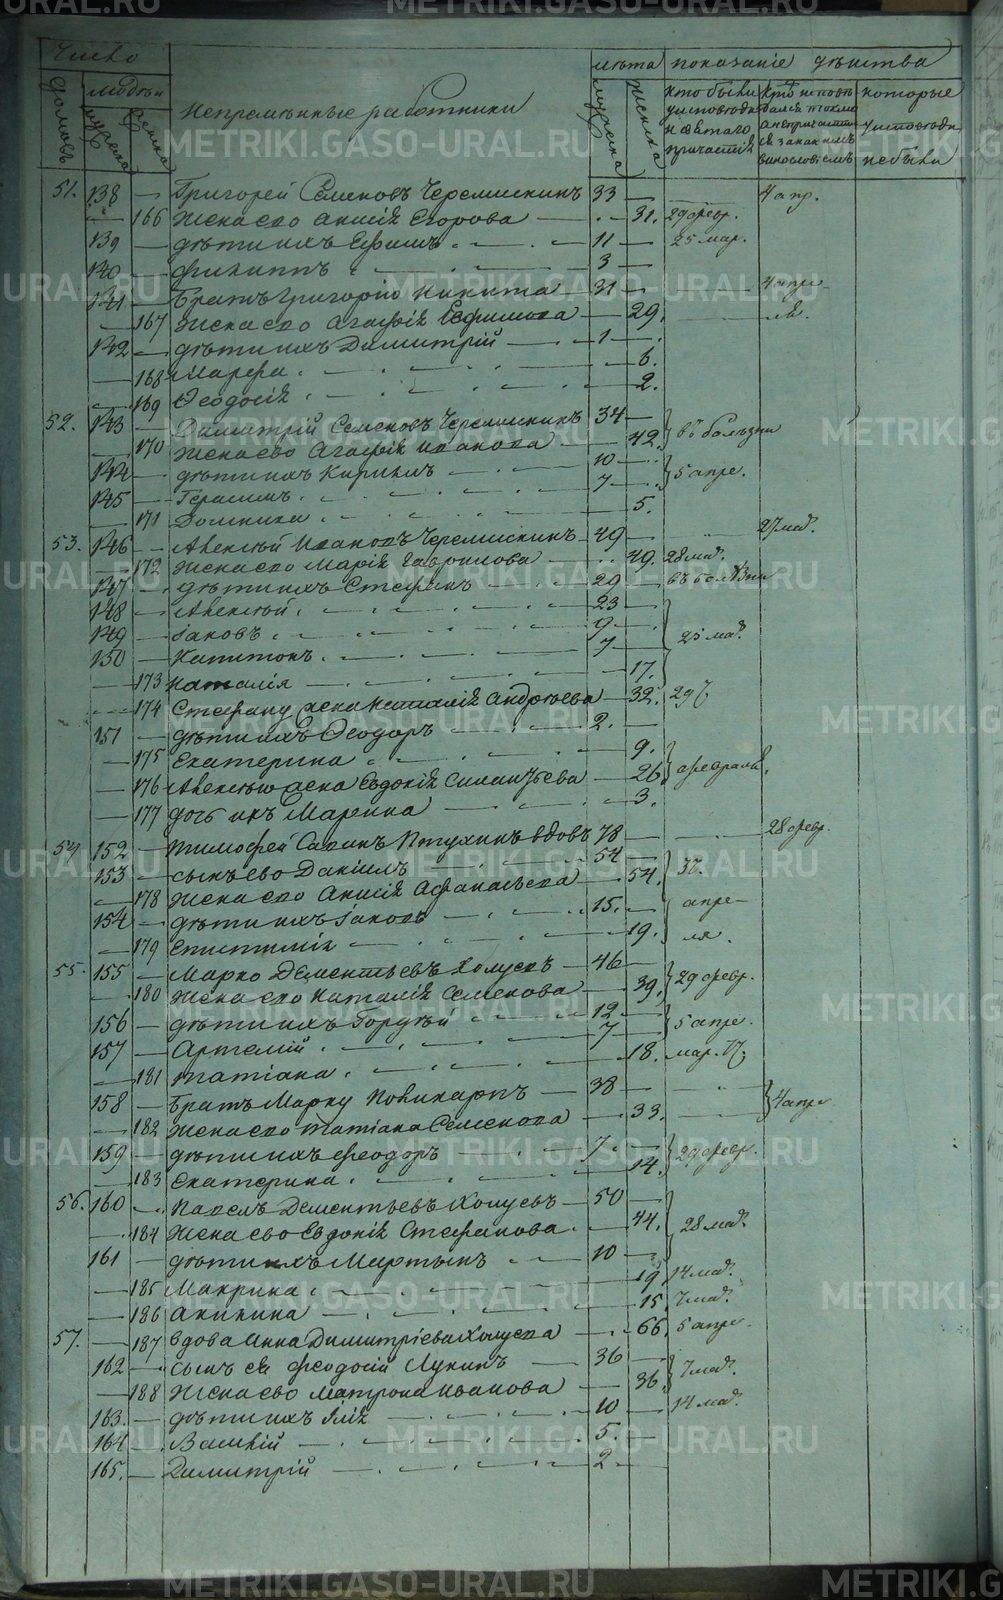 Число
лѣта показанiе дѣйства
домовъ
людей
мужеска
женска
Непремѣнные работники
мужеска
женска
кто были у исповѣди и святаго причастiя
которые у исповѣди не были
51. 138 — Григорей Семеновъ Черемискинъ 33 — 4 апр.
— 166 Жена его Анисiя Егорова — 31. 29 февр.
139 — дѣти ихъ Ефимъ 11 — 25 мар.
140 — Филиппъ 3 —
141 — Братъ Григорiю Никита — 31 — 4 апре-
— 167 Жена его Агафiя Ефимова — 29. ля.
142 — дѣти ихъ Димитрiй — 1 —
— 168 Марфа 6.
— 169 Ѳеодосiя 2.
52. 143 — Димитрiй Семеновъ Черемискинъ 34 —
— 170 Жена его Агафiя Иванова 42. въ болѣзни
144 — дѣти ихъ Кирилъ 10 — 5 апре.
145 — Герасимъ 7 —
— 171 Домника 5.
53. 146 — Алексѣй Ивановъ Черемискинъ — 49 — 27 мар.
— 172 Жена его Марiя Гаврилова 49. 28 мар.
147 — дѣти ихъ Стефанъ 29 — въ болѣзни
148 — Алексѣй 23 —
149 — Iаковъ 9 — 25 мар.
150 — Капитонъ 7 —
— 173 Наталiя 17.
— 174 Стефану жена Наталiя Андрѣева — 32.
151 — дѣти ихъ Ѳеодоръ 2. —
— 175 Екатерина 9.
— 176 Алексѣю жена Евдокiя Силантьева — 26 февраля.
— 177 дочь ихъ Марина 3.
54 152 — Тимофей Савинъ Пѣтухинъ вдовъ 78 — 28 февр.
153 — сынъ его Данiилъ 54 —
— 178 Жена его Анисiя Афанасьева 54.
154 — дѣти ихъ Iаковъ 15. — апре-
— 179 Епистимiя 19. ля.
55. 155 — Марко Дементьевъ Холуевъ — 46 —
— 180 Жена его Наталiя Семенова — 39. 29 февр.
156 — дѣти ихъ Гордѣй 12 — 5 апре.
157 — Артемiй 7 —
— 181 Татiана 18. мар. 17.
158 — Братъ Марку Поликарпъ — 38 — 4 апре
— 182 Жена его Татiана Семенова — 33.
159 — дѣти ихъ Феодоръ 7. — 29 февр.
— 183 Екатерина 14.
56. 160 — Павелъ Дементьевъ Холуевъ — 50 —
— 184 Жена его Евдокiя Стефанова 44. 28 мар.
161 — дѣти ихъ Мартынъ 10 —
— 185 Макрина 19 14 мар.
— 186 Акилина 15. 7 мар.
57. — 187 вдова Анна Димитрiева Холуева — 66. 5 апре.
162 — сынъ ея Феодосiй Лукинъ 36 —
— 188 Жена его Матрона Иванова — 36. 7 мар.
163. — дѣти ихъ Iлiя 10 — 14 мар.
164 — Василiй 5. —
165. — Димитрiй 2 —
METRIKI.GASO-URAL.RU